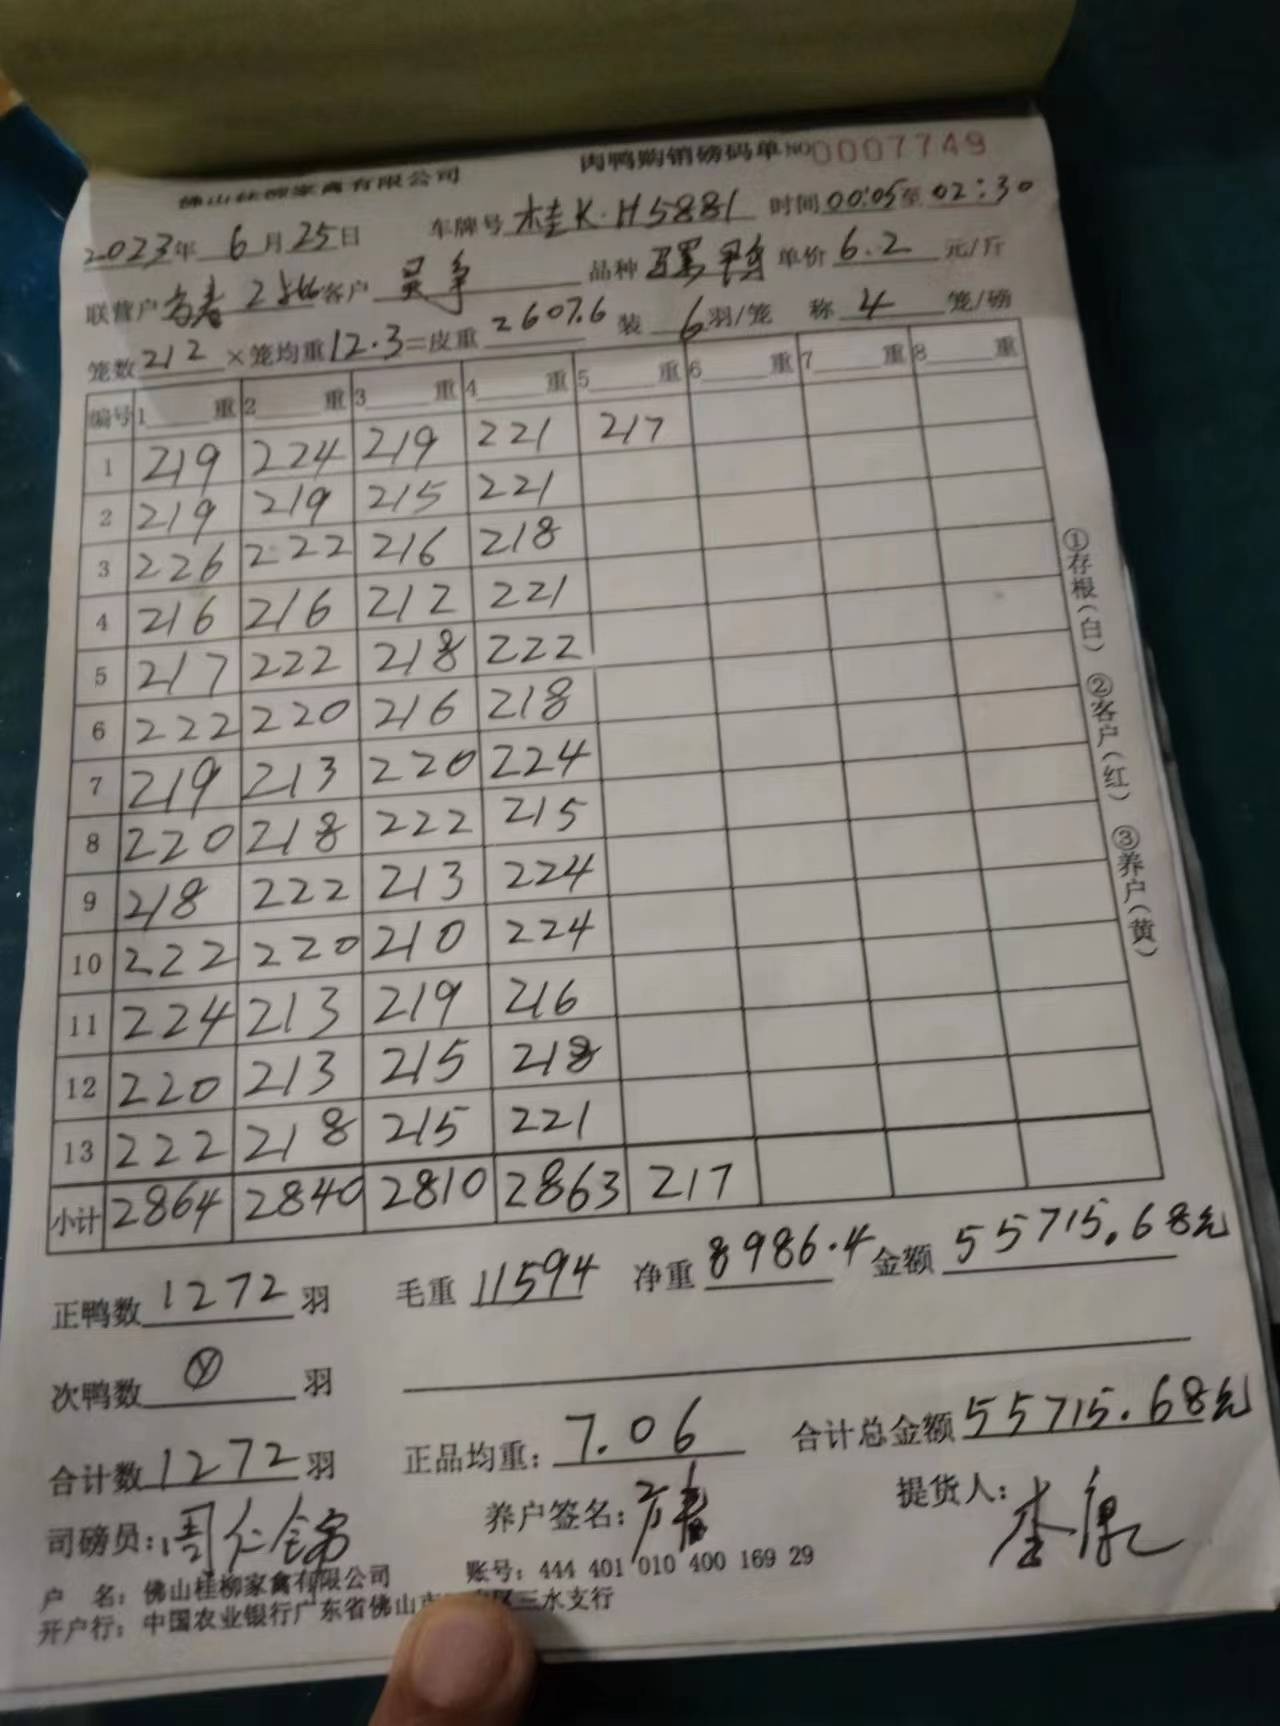 佛山桂柳家禽有限公司 肉鸭购销磅码单 NO 0007749
2023年 6月25日 车牌号 桂K·H5881 时间 00:05至 02:30
联营户 2批 客户 品种 骡鸭 单价 6.2 元/斤
笼数 212 ×笼均重 12.3=皮重 2607.6 装 6 羽/笼 称 4 笼/磅
编号 1 重 2 重 3 重 4 重 5 重 6 重 7 重 8 重
1 219 224 219 221 217
2 219 219 215 221
3 226 222 216 218
4 216 216 212 221
5 217 222 218 222
6 222 220 216 218
7 219 213 220 224
8 220 218 222 215
9 218 222 213 224
10 222 220 210 224
11 224 213 219 216
12 220 213 215 218
13 222 218 215 221
小计 2864 2840 2810 2863 217
正鸭数 1272 羽 毛重 11594 净重 8986.4 金额 55715.68元
次鸭数 羽
合计数 1272 羽 正品均重: 7.06 合计总金额 55715.68元
司磅员: 养户签名: 提货人:
户 名: 佛山桂柳家禽有限公司 账号: 444 401 010 400 169 29
开户行: 中国农业银行广东省佛山市 三水支行
①存根(白) ②客户(红) ③养户(黄)